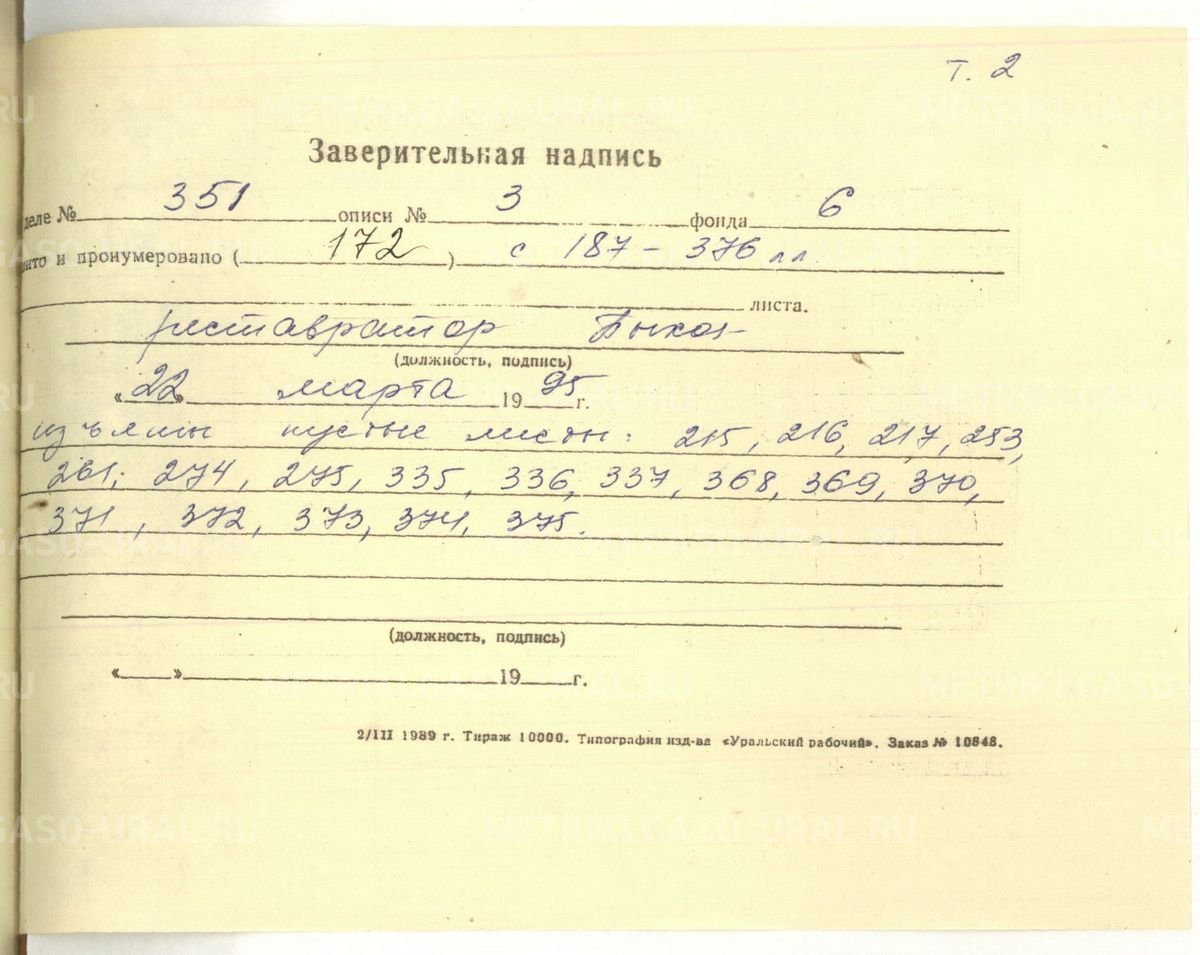 т. 2
Заверительная надпись
деле № 351 описи № 3 фонда 6
шито и пронумеровано ( 172 ) с 187 - 376 лл
листа.
реставратор
(должность, подпись)
« 22 » марта 19 95 г.
изъяты пустые листы: 215, 216, 217, 253,
261; 274, 275, 335, 336, 337, 368, 369, 370,
371, 372, 373, 374, 375.
(должность, подпись)
« » 19 г.
2/III 1989 г. Тираж 10000. Типография изд-ва «Уральский рабочий». Заказ № 10848.